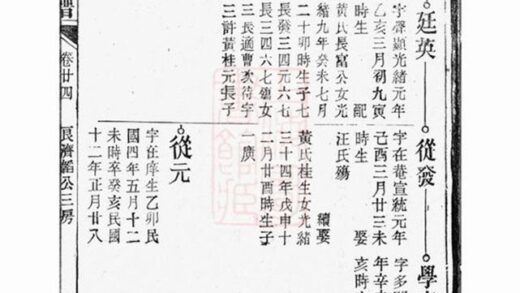 譜
卷廿四
艮濟韜公三房
廷英
字聲顯光緒元年
乙亥三月初九寅
時生 配
黃氏長富公女光
緒九年癸未七月
二十卯時生子七
長發三四元六七
長三四六七殤女
三長適曹次符字
三許黃桂元長子
從發
字在菴宣統元年
己酉三月廿三未
時生 娶
汪氏殤
續娶
黃氏桂生女光緒
三十四年戊申十
二月廿酉時生子
一廣
從元
字在庠生乙卯民
國四年五月十二
未時卒癸亥民國
十二年正月廿八
學
字多
年辛
亥時